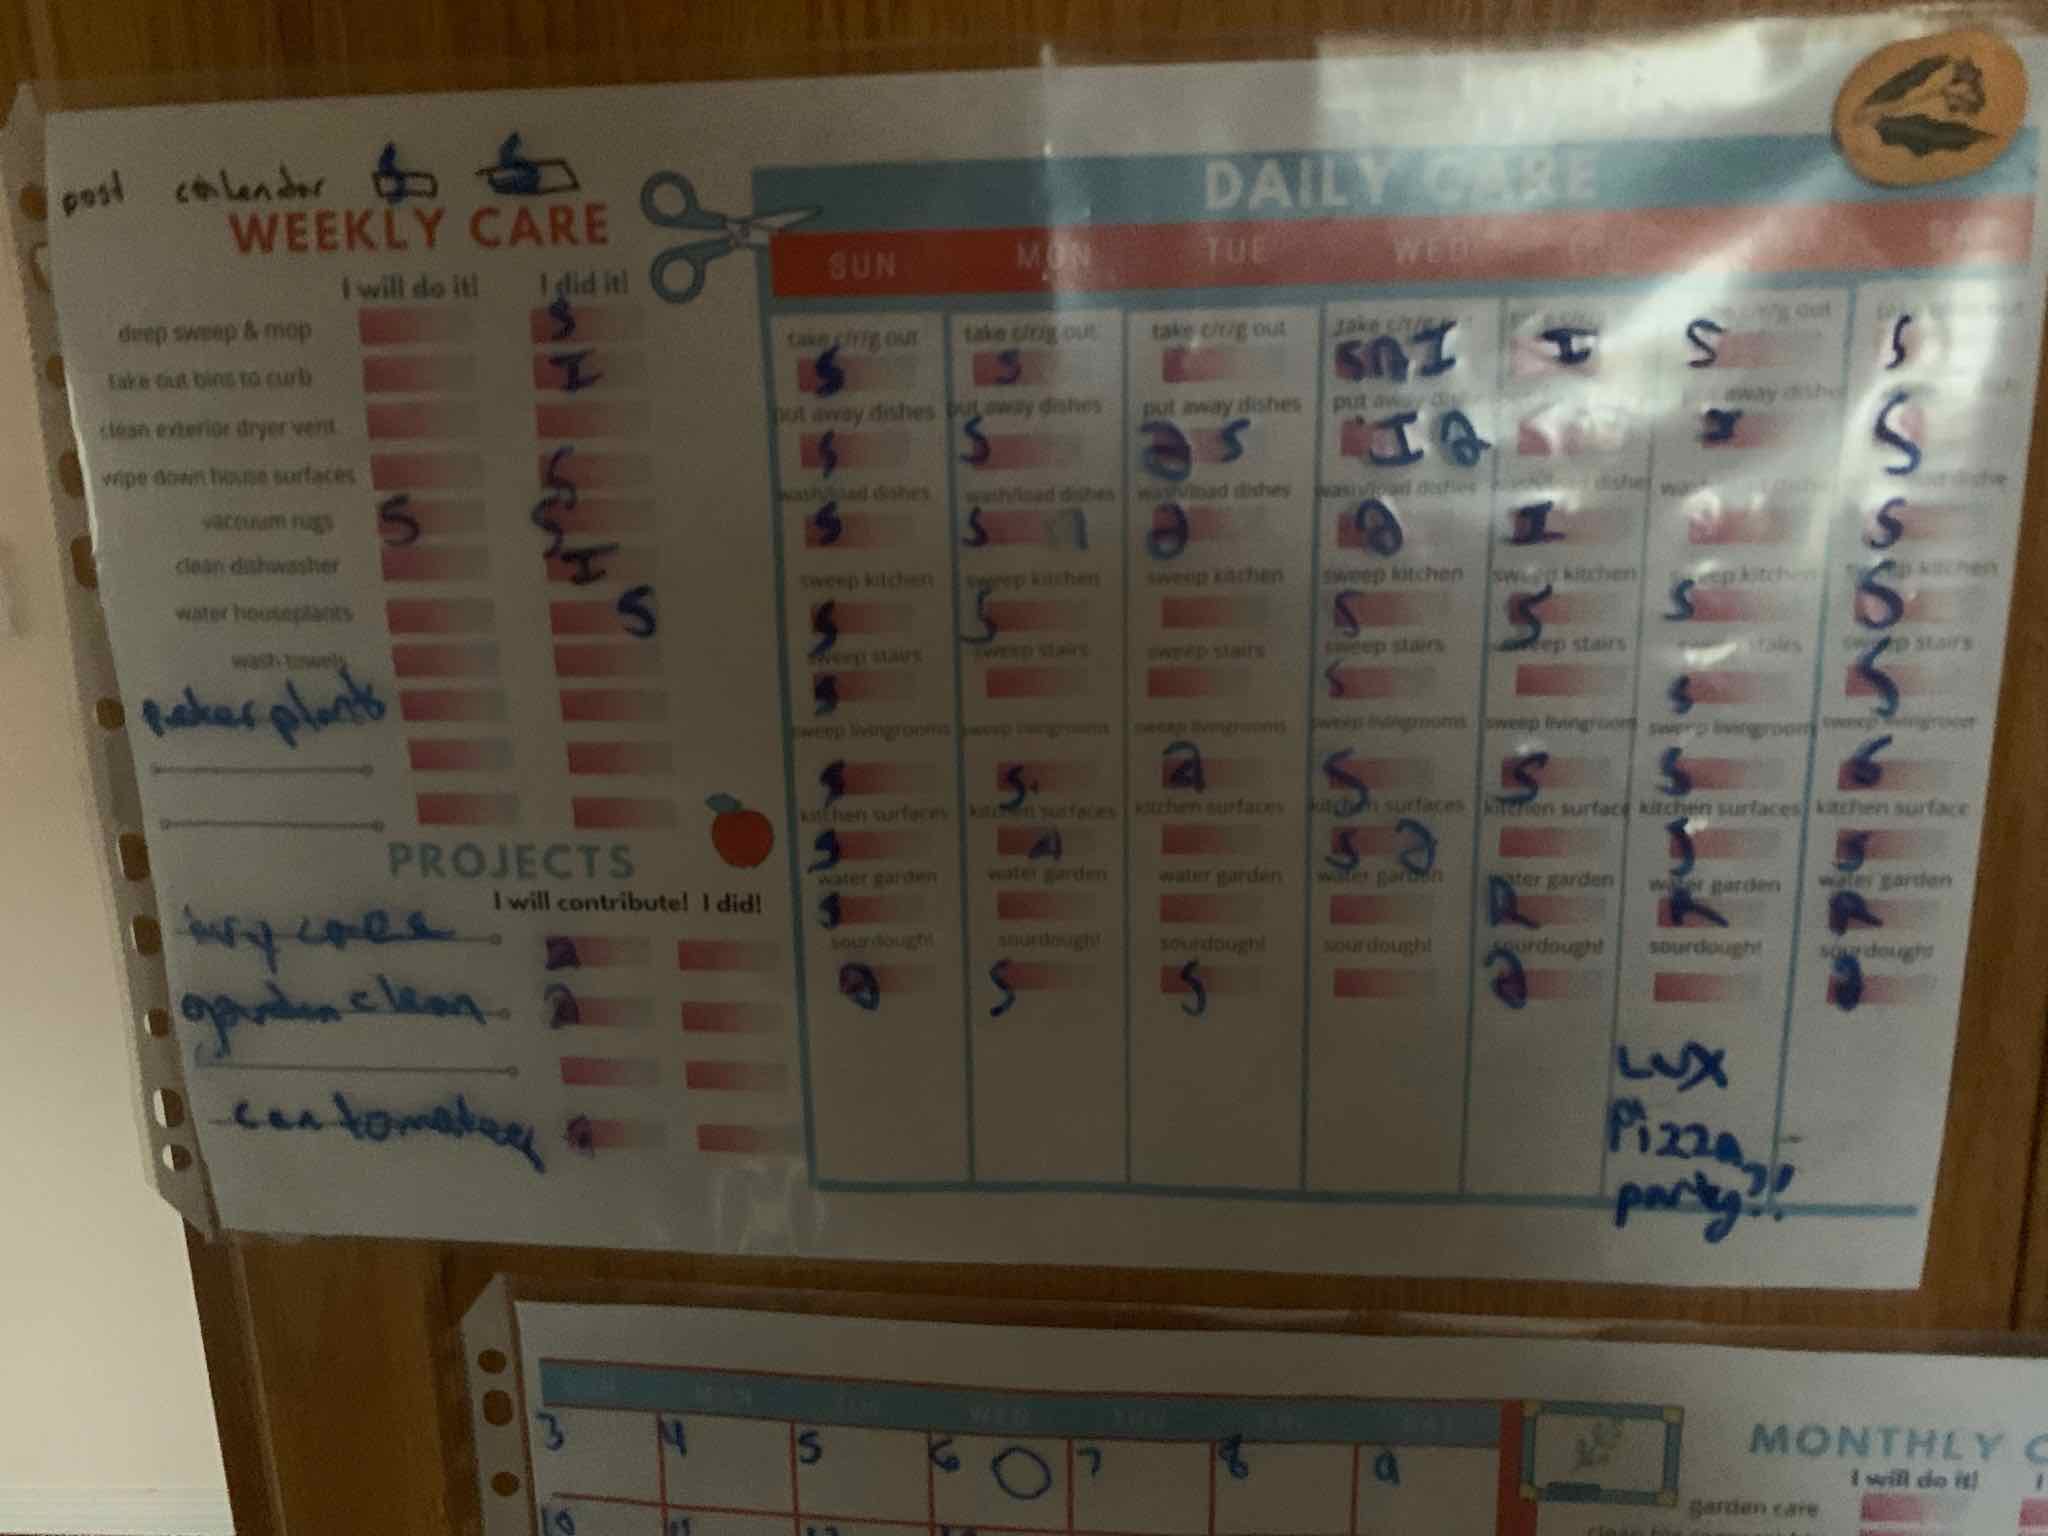 post calendar S S
WEEKLY CARE
I will do it! I did it!
deep sweep & mop S
take out bins to curb I
clean exterior dryer vent
wipe down house surfaces S
vaccuum rugs S S
clean dishwasher I
water houseplants S
wash towels
plants
PROJECTS
I will contribute! I did!
garden clean
can tomatoes
DAILY CARE
SUN MON TUE WED
take c/r/g out take c/r/g out take c/r/g out take c/r/g out
S S I I S S
put away dishes put away dishes put away dishes put away away dishes
S S S I I S
wash/load dishes wash/load dishes wash/load dishes wash/load dishes wash/load dishes
S S I S
sweep kitchen sweep kitchen sweep kitchen sweep kitchen sweep kitchen sweep kitchen sweep kitchen
S S S S S S
sweep stairs sweep stairs sweep stairs sweep stairs sweep stairs sweep stairs
S S S S
sweep livingrooms sweep livingrooms sweep livingrooms sweep livingrooms sweep livingroom sweep livingroom sweep livingroom
S S S S S
kitchen surfaces kitchen surfaces kitchen surfaces kitchen surfaces kitchen surface kitchen surfaces kitchen surface
S S S S
water garden water garden water garden water garden water garden water garden water garden
S
sourdough! sourdough! sourdough! sourdough! sourdough! sourdough! sourdough!
S S
LUX
Pizza
party?!
SUN MON TUE WED THU FRI SAT
3 4 5 6 7 8 9
10 11
MONTHLY C
I will do it! I
garden care